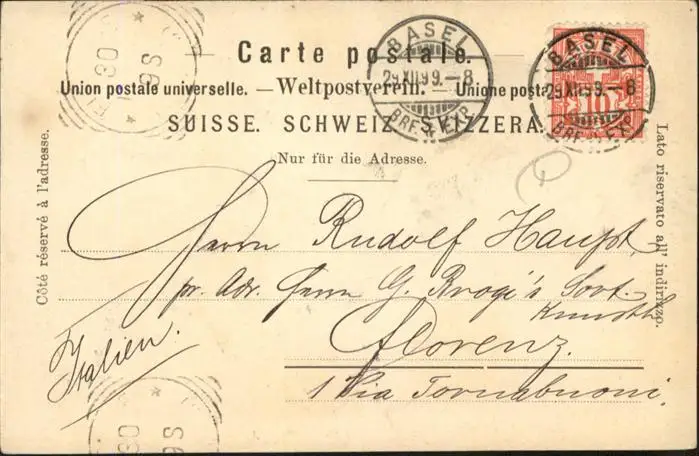 Carte postale.
Union postale universelle. — Weltpostverein. — Unione posta
SUISSE. SCHWEIZ. SVIZZERA.
Nur für die Adresse.
Côté réservé à l'adresse.
Lato riservato all' indirizzo.
BASEL
29.XII.99.—8
BRF. EXP.
BASEL
29.XII.99.—8
BRF. EXP.
10
Herrn Rudolf Haupt,
pr. Adr. Herrn G. Sort.
Kunsth
Florenz.
1 Via Tornabuoni.
Italien.